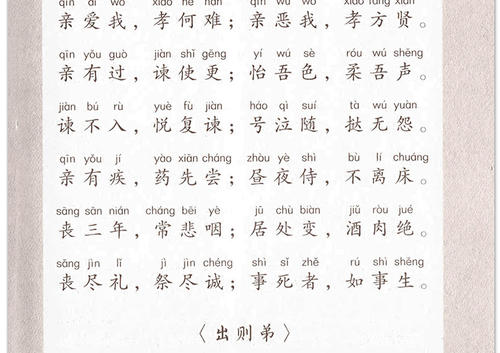 qīn ài wǒ xiào hé nán qīn wù wǒ xiào fāng xián
亲爱我，孝何难；亲恶我，孝方贤。
qīn yǒu guò jiàn shǐ gēng yí wú sè róu wú shēng
亲有过，谏使更；怡吾色，柔吾声。
jiàn bú rù yuè fù jiàn háo qì suí tà wú yuàn
谏不入，悦复谏；号泣随，挞无怨。
qīn yǒu jí yào xiān cháng zhòu yè shì bù lí chuáng
亲有疾，药先尝；昼夜侍，不离床。
sāng sān nián cháng bēi yè jū chù biàn jiǔ ròu jué
丧三年，常悲咽；居处变，酒肉绝。
sāng jìn lǐ jì jìn chéng shì sǐ zhě rú shì shēng
丧尽礼，祭尽诚；事死者，如事生。
〈出则弟〉